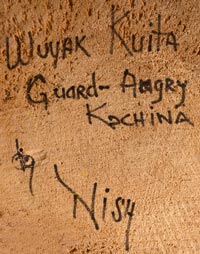 Wuyak Kuita
Guard-Angry
Kachina
Nisy